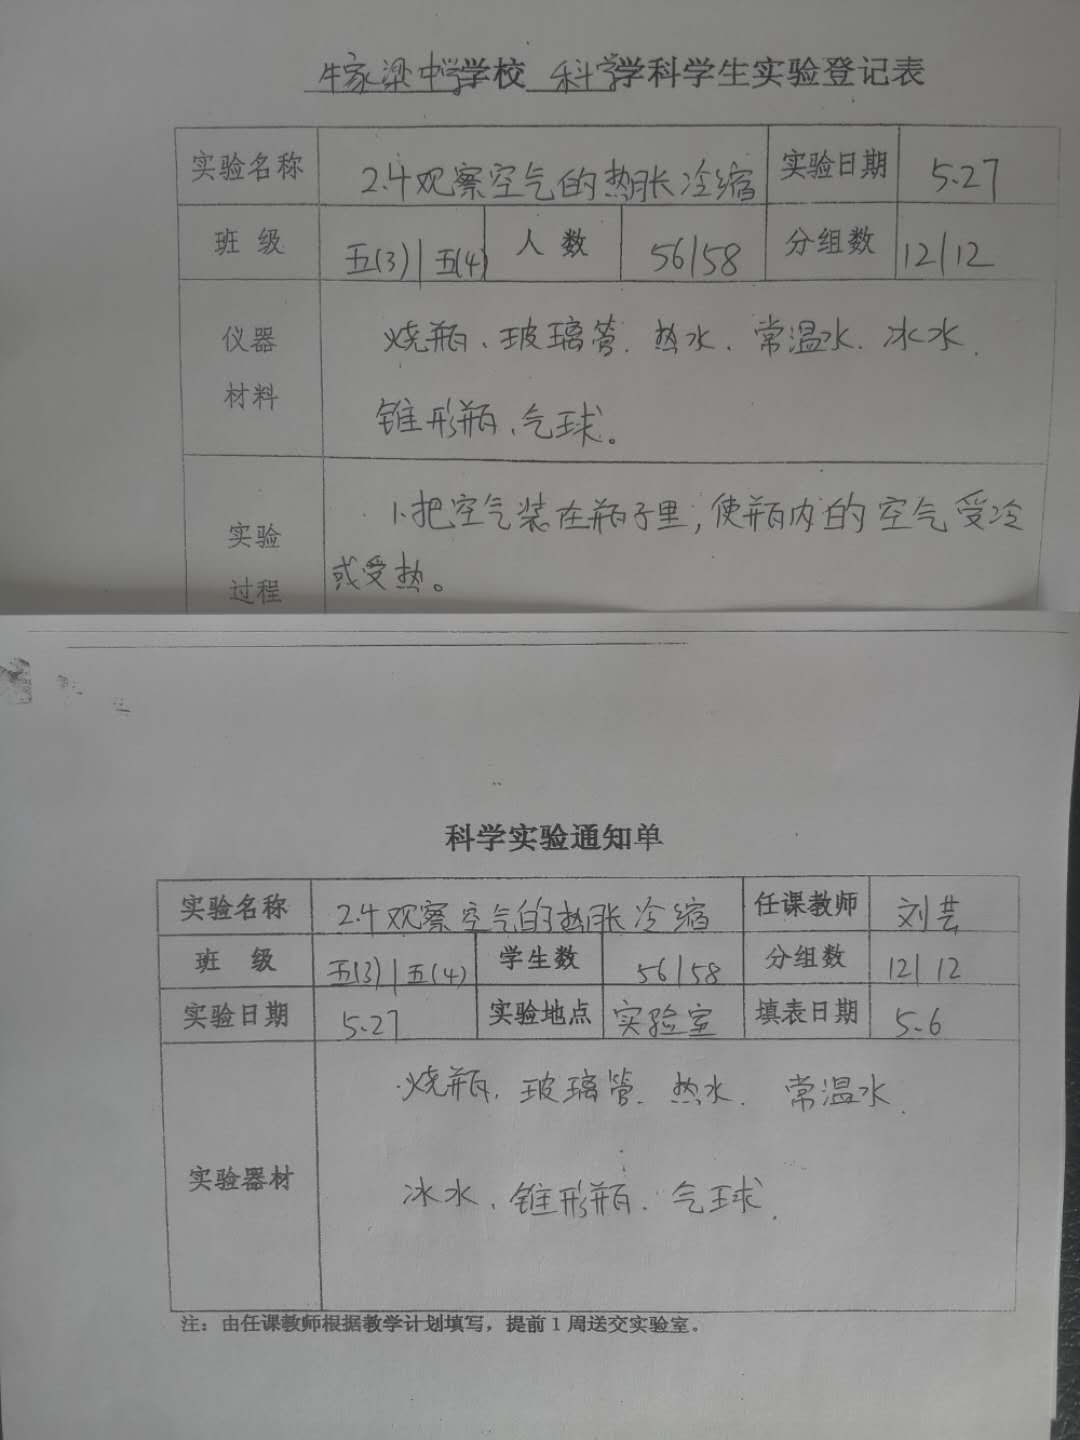 牛家梁中学学校 科学学科学生实验登记表
实验名称 2.4观察空气的热胀冷缩 实验日期 5.27
班 级 五(3)|五(4) 人 数 56|58 分组数 12|12
仪器 烧瓶、玻璃管、热水、常温水、冰水、
材料 锥形瓶、气球。
1.把空气装在瓶子里,使瓶内的空气受冷
实验
或受热。
过程
科学实验通知单
实验名称 2.4观察空气的热胀冷缩 任课教师 刘芸
班 级 五(3)|五(4) 学生数 56|58 分组数 12|12
实验日期 5.27 实验地点 实验室 填表日期 5.6
烧瓶、玻璃管、热水、常温水、
实验器材
冰水、锥形瓶、气球、
注：由任课教师根据教学计划填写，提前1周送交实验室。